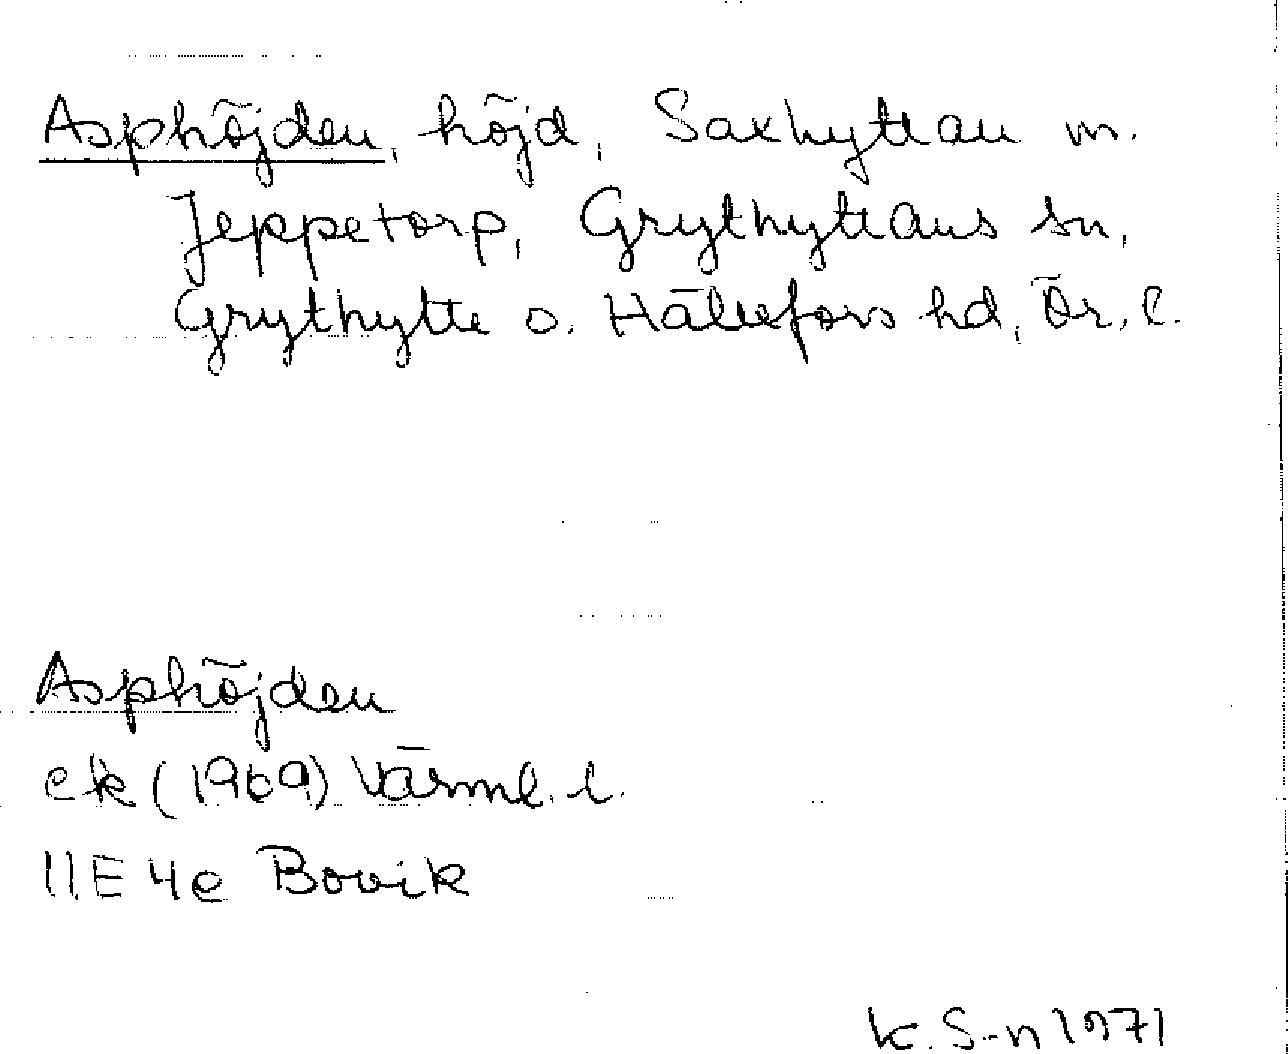 Asphöjden, höjd, Saxhyttan m.
Jeppetorp, Grythyttans sn,
Grythytte o. Hällefors hd, Ör. l.
Asphöjden
ek (1969) Värml. l.
11E 4e Bovik
K. S-n 1971